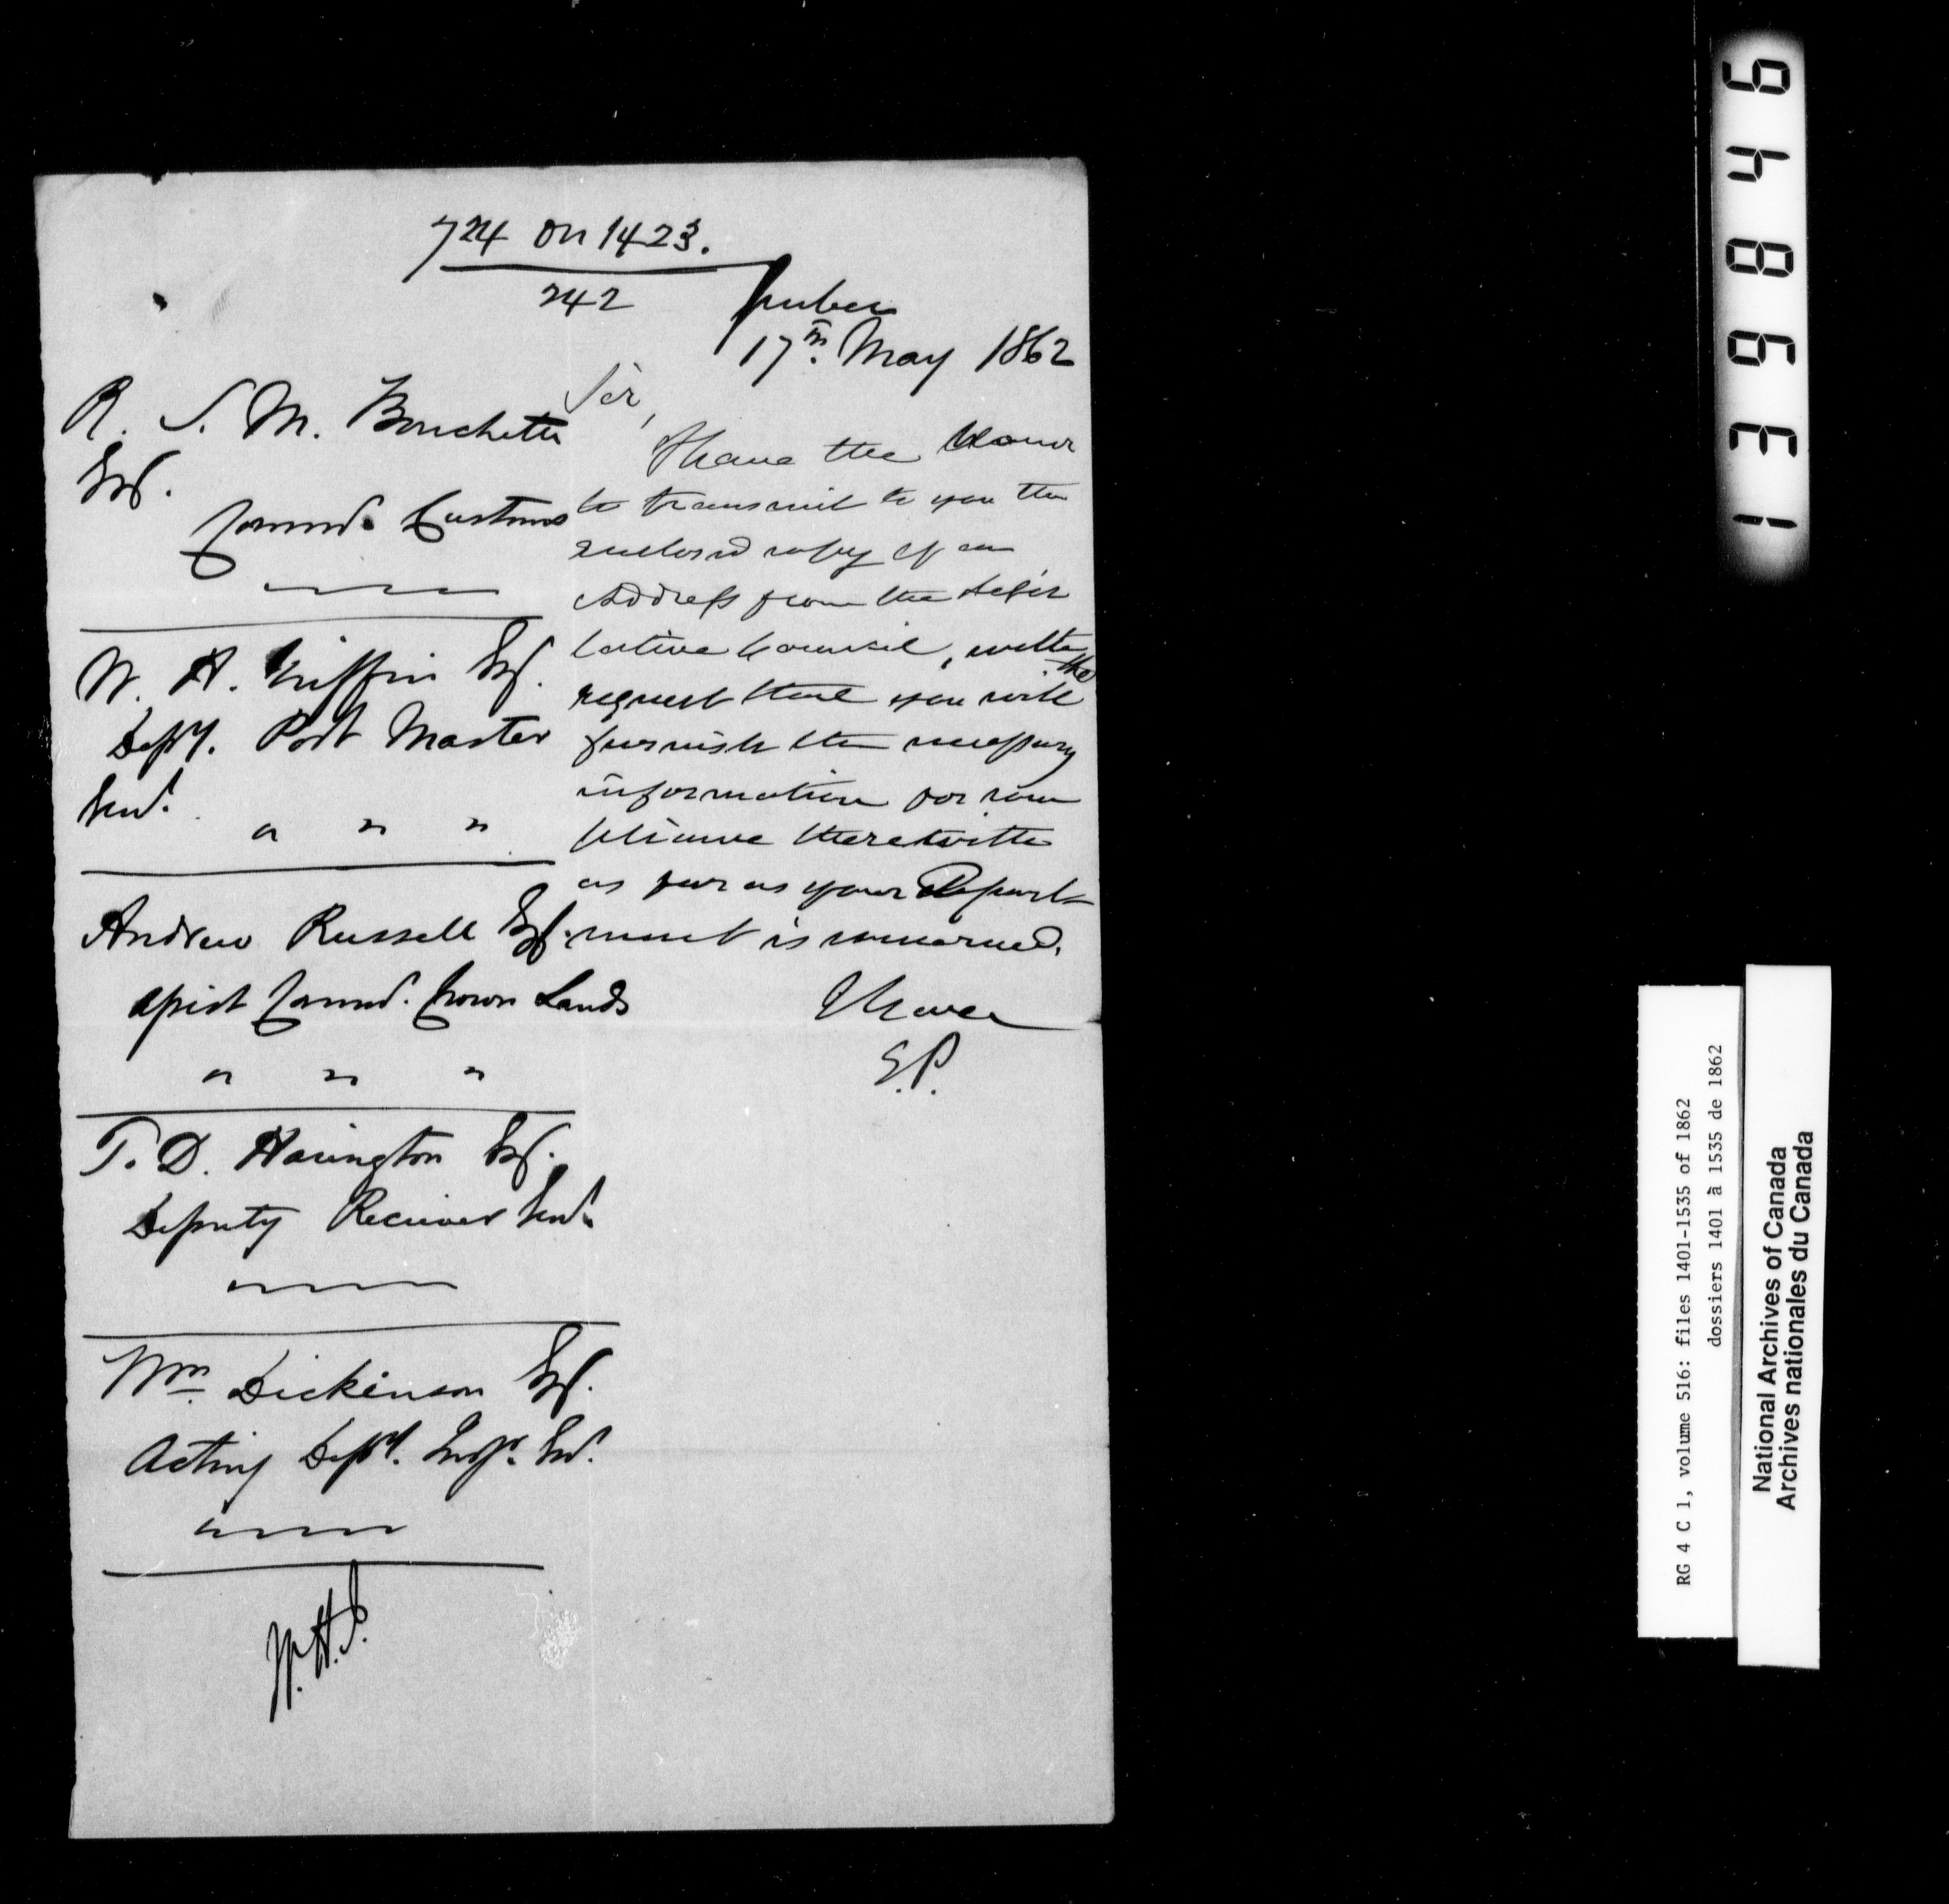 724 on 1423.
242
Quebec
17th. May 1862
R. S. M. Bouchette
Esq.
Commr. Customs
W. H. Griffin Esq.
Depy. Post Master
Genl.
" " "
Andrew Russell Esq.
Assist Commr. Crown Lands
" " "
T. D. Harington Esq.
Deputy Receiver Genl.
Wm Dickinson Esq.
Acting Depy. Inspr. Genl.
Sir,
I have the honor
to transmit to you the
enclosed copy of an
Address from the Legis
lative Council, with the
request that you will
furnish the necessary
information for com
pliance therewith
as far as your Depart-
ment is concerned.
I have
E.P.
139846
RG 4 C 1, volume 516: files 1401-1535 of 1862
dossiers 1401 à 1535 de 1862
National Archives of Canada
Archives nationales du Canada